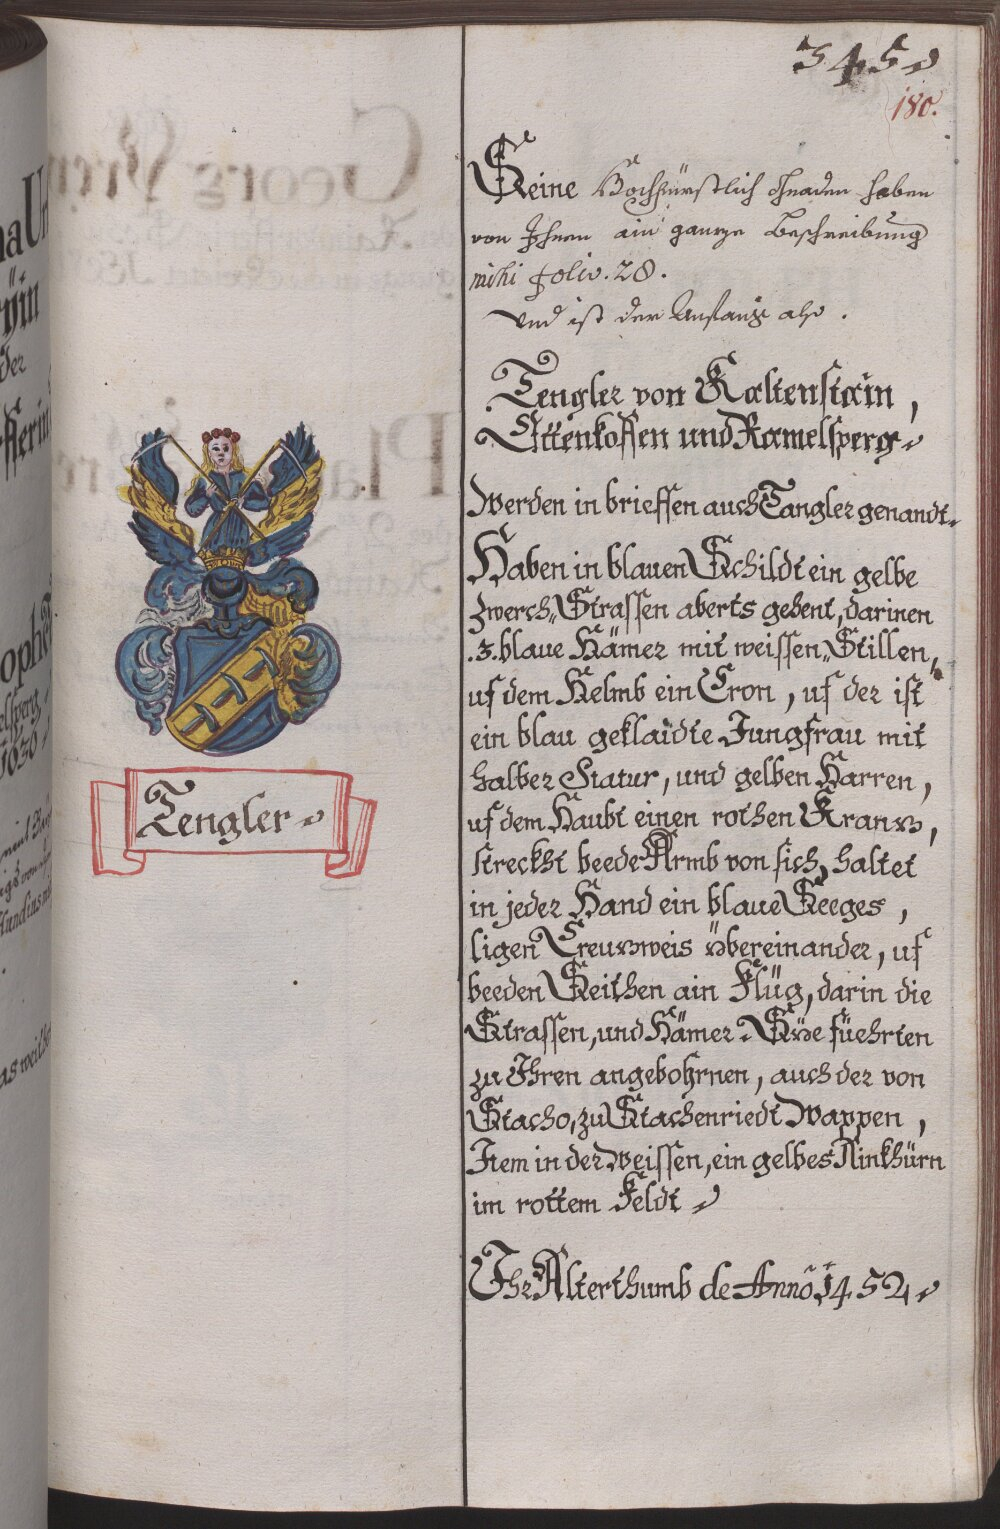 345
180.
Seine Hochfürstlich Gnaden haben
von Ihnen ain ganze Beschreibung
mihi Folio. 28.
Und ist der Anfang also.
Tengler von Kaltenstain,
Ettenkoffen und Ramelsperg
Werden in brieffen auch Tangler genandt.
Haben in blauen Schildt ein gelbe
zwerch Strassen aberts gehent, darinen
.3. blaue Hämer mit weissen Stillen,
uf dem Helmb ein Cron, uf der ist
ein blau geklaidte Jungfrau mit
halber Statur, und gelben Harren,
uf dem Haubt einen rothen Kranz,
streckht beede Armb von sich, haltet
in jeder Hand ein blaue Seeges,
ligen Creuzweis übereinander, uf
beeden Seithen ain Flüg, darin die
Strassen, und Hämer. Sÿe füehrten
zu Ihren angebohrnen, auch der von
Stacho, zu Stachenriedt Wappen,
Item in der Weissen, ein gelbes Rinkhürn
im rottem Feldt
Ihr Alterthumb de Anno 1452
Tengler